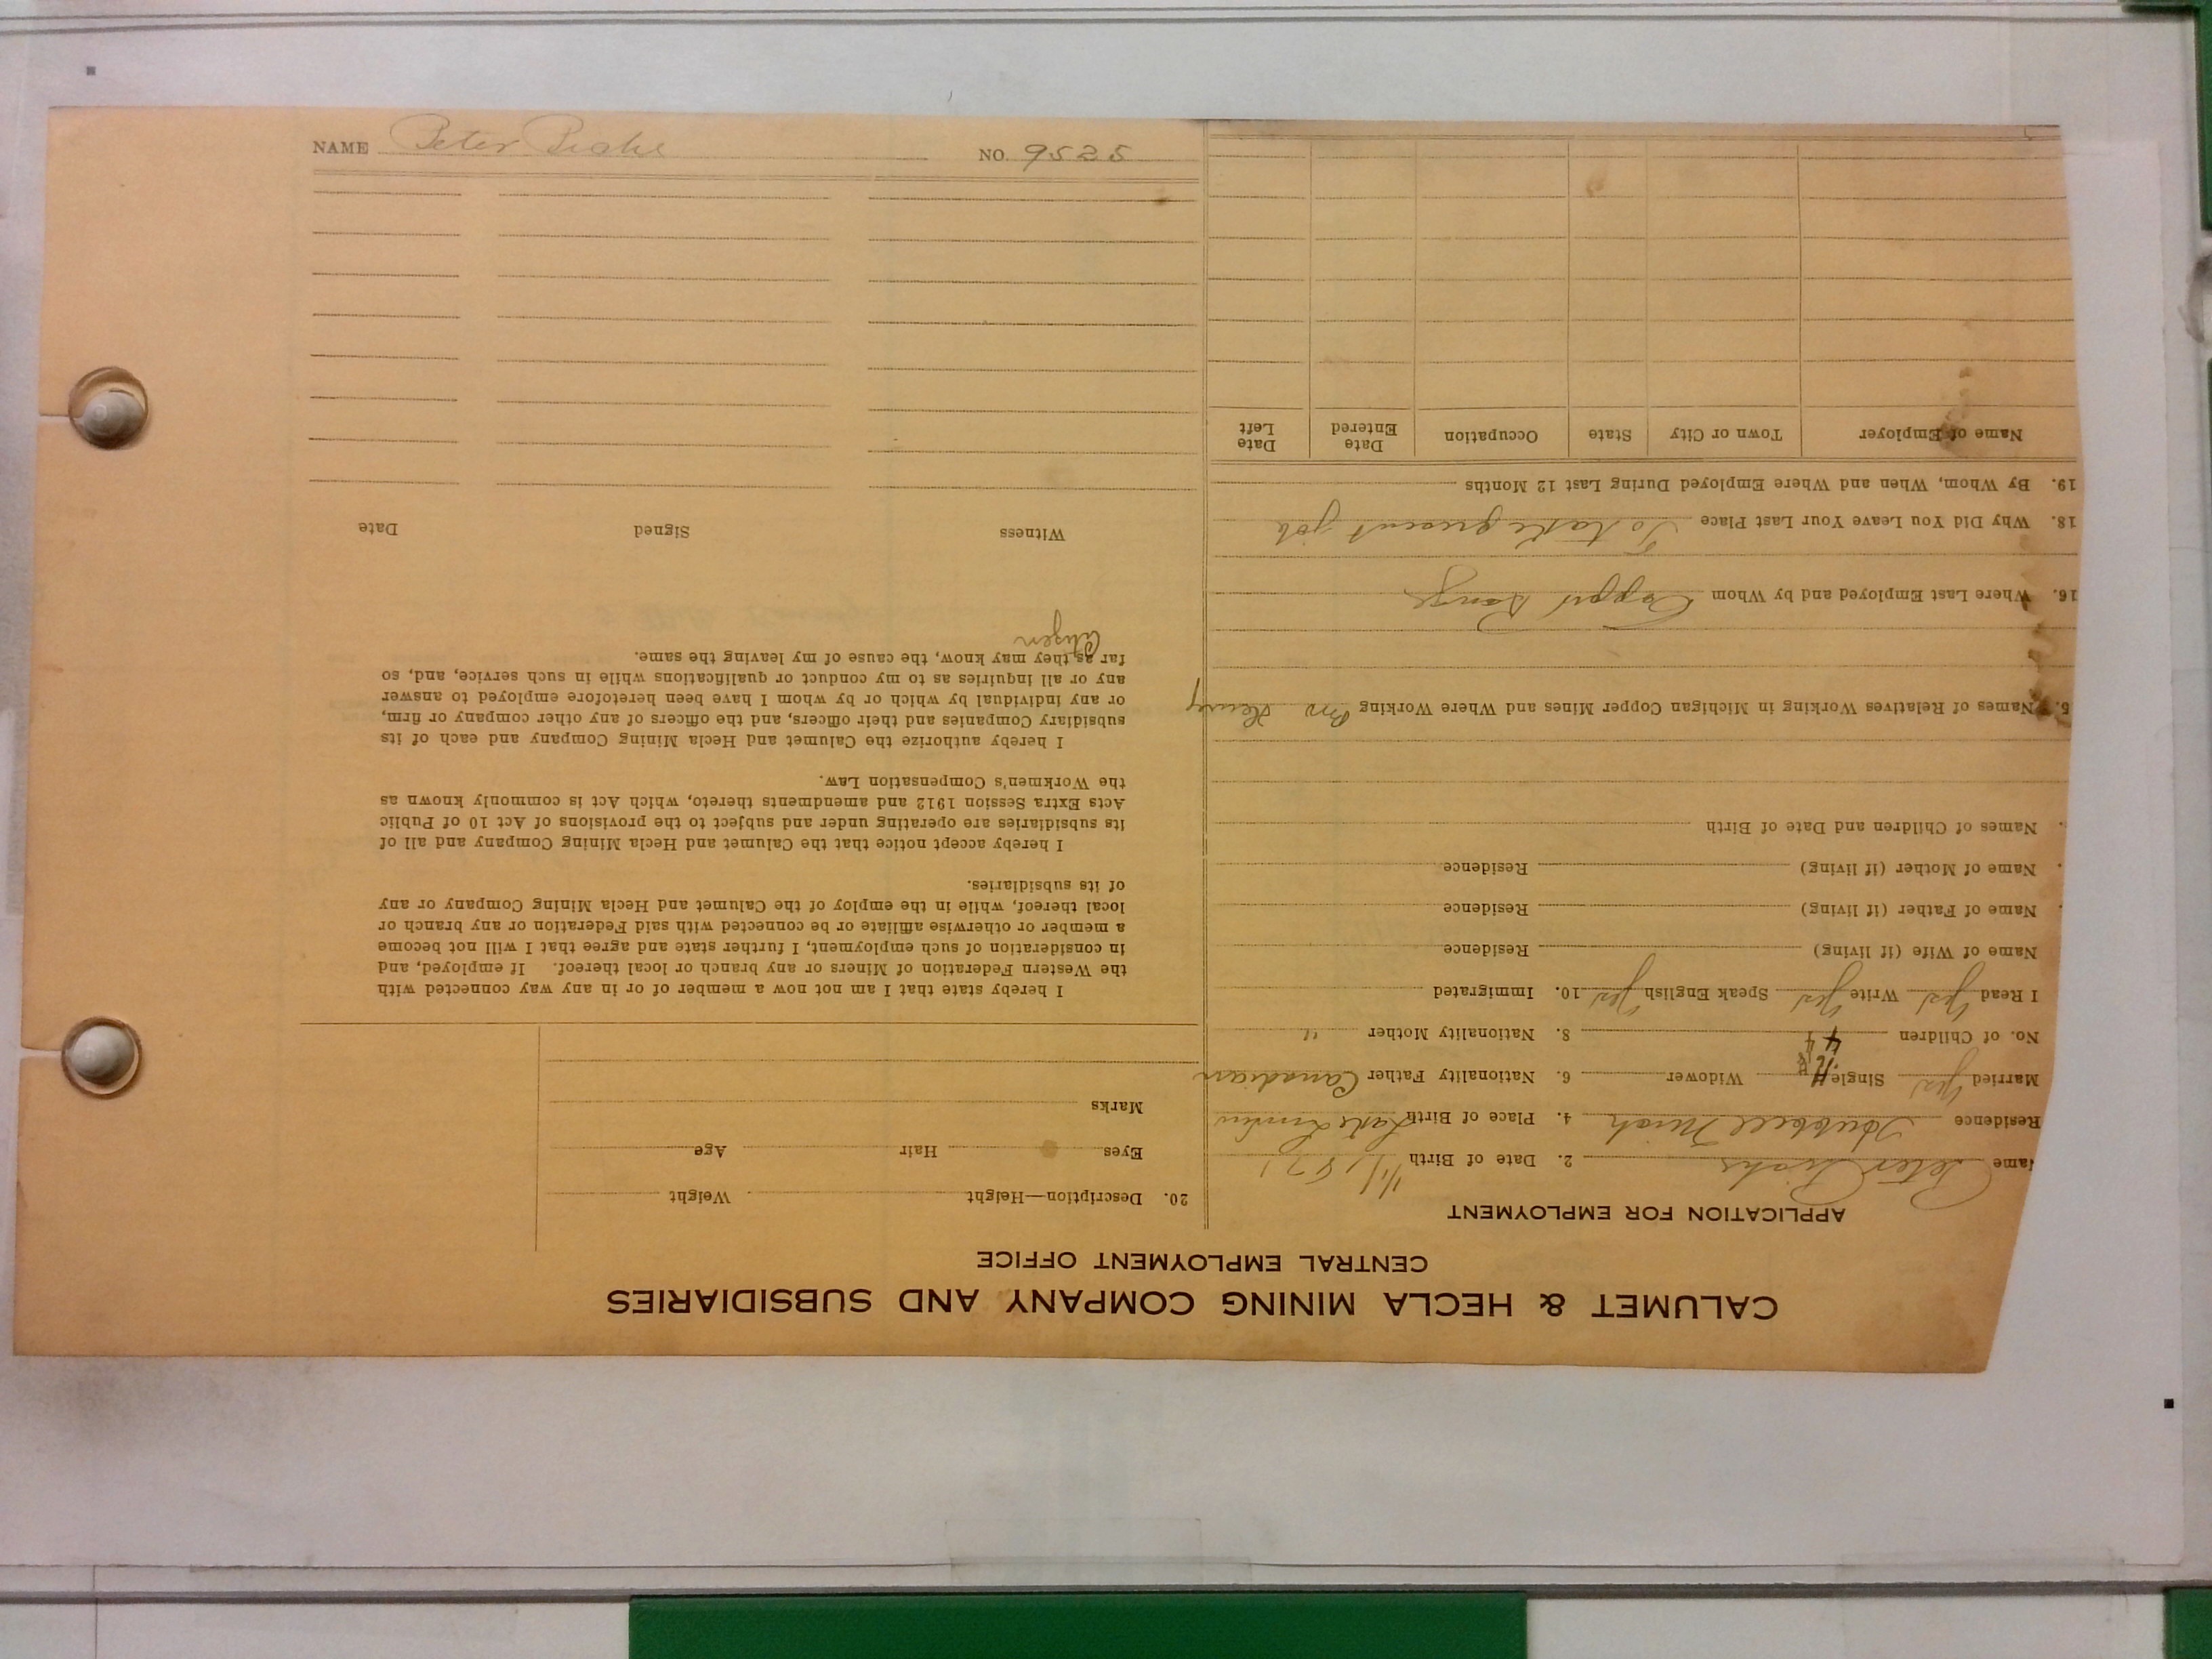 CALUMET & HECLA MINING COMPANY AND SUBSIDIARIES
CENTRAL EMPLOYMENT OFFICE
APPLICATION FOR EMPLOYMENT
ame Peter 2. Date of Birth 1/1/871
Residence Hubbell Mich 4. Place of Birth Lake Linden
Married Yes Single Widower 6. Nationality Father Canadian
No. of Children 4 8. Nationality Mother "
I Read Yes Write Yes Speak English Yes 10. Immigrated
Name of Wife (if living) Residence
Name of Father (if living) Residence
Name of Mother (if living) Residence
Names of Children and Date of Birth
5. Names of Relatives Working in Michigan Copper Mines and Where Working Bro Henry
16. Where Last Employed and by Whom Copper Range
18. Why Did You Leave Your Last Place To take present job
19. By Whom, When and Where Employed During Last 12 Months
Name of Employer Town or City State Occupation Date Entered Date Left
20. Description—Height Weight
Eyes Hair Age
Marks
I hereby state that I am not now a member of or in any way connected with
the Western Federation of Miners or any branch or local thereof. If employed, and
in consideration of such employment, I further state and agree that I will not become
a member or otherwise affiliate or be connected with said Federation or any branch or
local thereof, while in the employ of the Calumet and Hecla Mining Company or any
of its subsidiaries.
I hereby accept notice that the Calumet and Hecla Mining Company and all of
its subsidiaries are operating under and subject to the provisions of Act 10 of Public
Acts Extra Session 1912 and amendments thereto, which Act is commonly known as
the Workmen's Compensation Law.
I hereby authorize the Calumet and Hecla Mining Company and each of its
subsidiary Companies and their officers, and the officers of any other company or firm,
or any individual by which or by whom I have been heretofore employed to answer
any or all inquiries as to my conduct or qualifications while in such service, and, so
far as they may know, the cause of my leaving the same.
Citizen
Witness Signed Date
NAME Peter NO. 9525